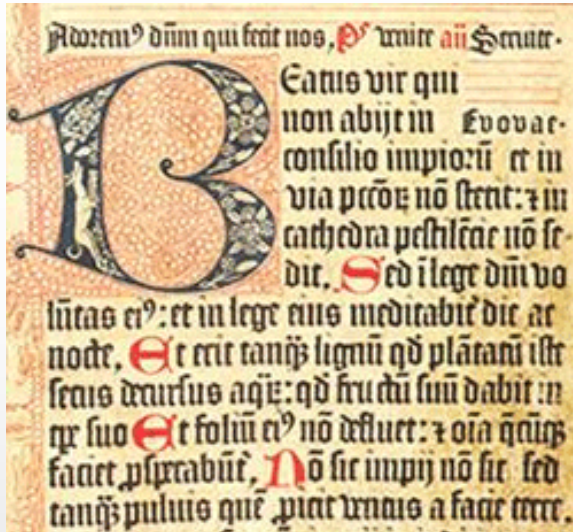 Adorem⁹ dñm qui fecit nos, p̄s venite añ Seruite.
Beatus vir qui
non abijt in Evovae.
consilio impiorū et in
via pccōꝝ nō stetit: ⁊ in
cathedra pestilēcie nō se-
dit, Sed ī lege dñi vo
lūtas ei⁹: et in lege eius meditabit̄ die ac
nocte, Et erit tanq̄ꝫ lignū qd̄ plātatū iſte
secus decursus aqꝝ: qd̄ fructū suū dabit in
tꝑe suo Et foliū ei⁹ nō defluet: ⁊ oīa q̄cūqꝫ
faciet ꝓsperabūt̄, Nō sic impij nō sic sed
tanq̄ꝫ puluis quē ꝓicit ventus a facie terre,